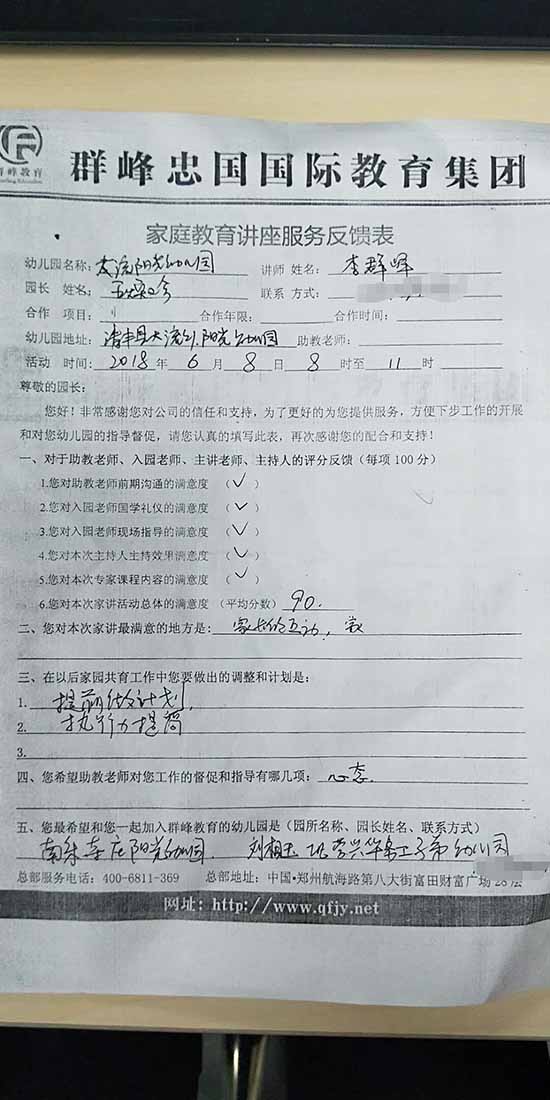 群峰教育
群峰忠国国际教育集团
家庭教育讲座服务反馈表
幼儿园名称：大流阳光幼儿园 讲师 姓名：李群峰
园长 姓名： 联系 方式：
合作 项目： 合作年限： 合作时间：
幼儿园地址：清丰县大流乡阳光幼儿园 助教老师：
活动 时间：2018年 6 月 8 日 8 时至 11 时
尊敬的园长：
您好！非常感谢您对公司的信任和支持，为了更好的为您提供服务，方便下步工作的开展
和对您幼儿园的指导督促，请您认真的填写此表，再次感谢您的配合和支持！
一、对于助教老师、入园老师、主讲老师、主持人的评分反馈（每项 100 分）
1.您对助教老师前期沟通的满意度 （✓）
2.您对入园老师国学礼仪的满意度 （✓）
3.您对入园老师现场指导的满意度 （✓）
4.您对本次主持人主持效果满意度 （✓）
5.您对本次专家课程内容的满意度 （✓）
6.您对本次家讲活动总体的满意度 （平均分数） 90.
二、您对本次家讲最满意的地方是： 家长的互动，
三、在以后家园共育工作中您要做出的调整和计划是：
1. 提前做计划
2. 执行力提高
3.
四、您希望助教老师对您工作的督促和指导有哪几项： 心态.
五、您最希望和您一起加入群峰教育的幼儿园是（园所名称、园长姓名、联系方式）
阳光幼园. 子弟幼儿园
总部服务电话：400-6811-369 总部地址：中国·郑州航海路第八大街富田财富广场 28 层
网址：http://www.qfjy.net